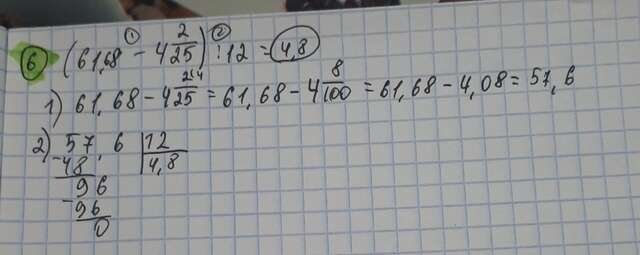 ① ②
6 (61,68 - 4 2/25) : 12 = 4,8
1) 61,68 - 4 2\4/25 = 61,68 - 4 8/100 = 61,68 - 4,08 = 57,6
2) 57,6 | 12
-48 | 4,8
96
-96
0